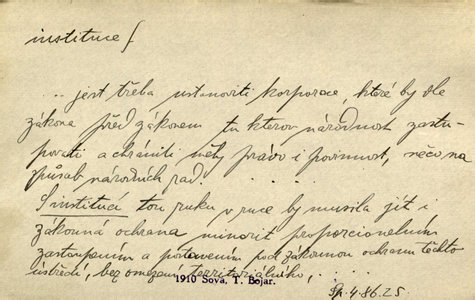 instituce f
... jest třeba ustanoviti korporace, které by dle
zákona před zákonem tu kterou národnost zastu-
povati a chrániti měly právo i povinnost, něco na
způsob národních rad ....
S institucí tou ruku v ruce by musila jíti i
zákonná ochrana minorit proporcionelním
zastoupením a postavením pod zákonnou ochranu těchto
ústředí, bez omezení territoriálního, ...
1910 Sova, T. Bojar.
4.86.25